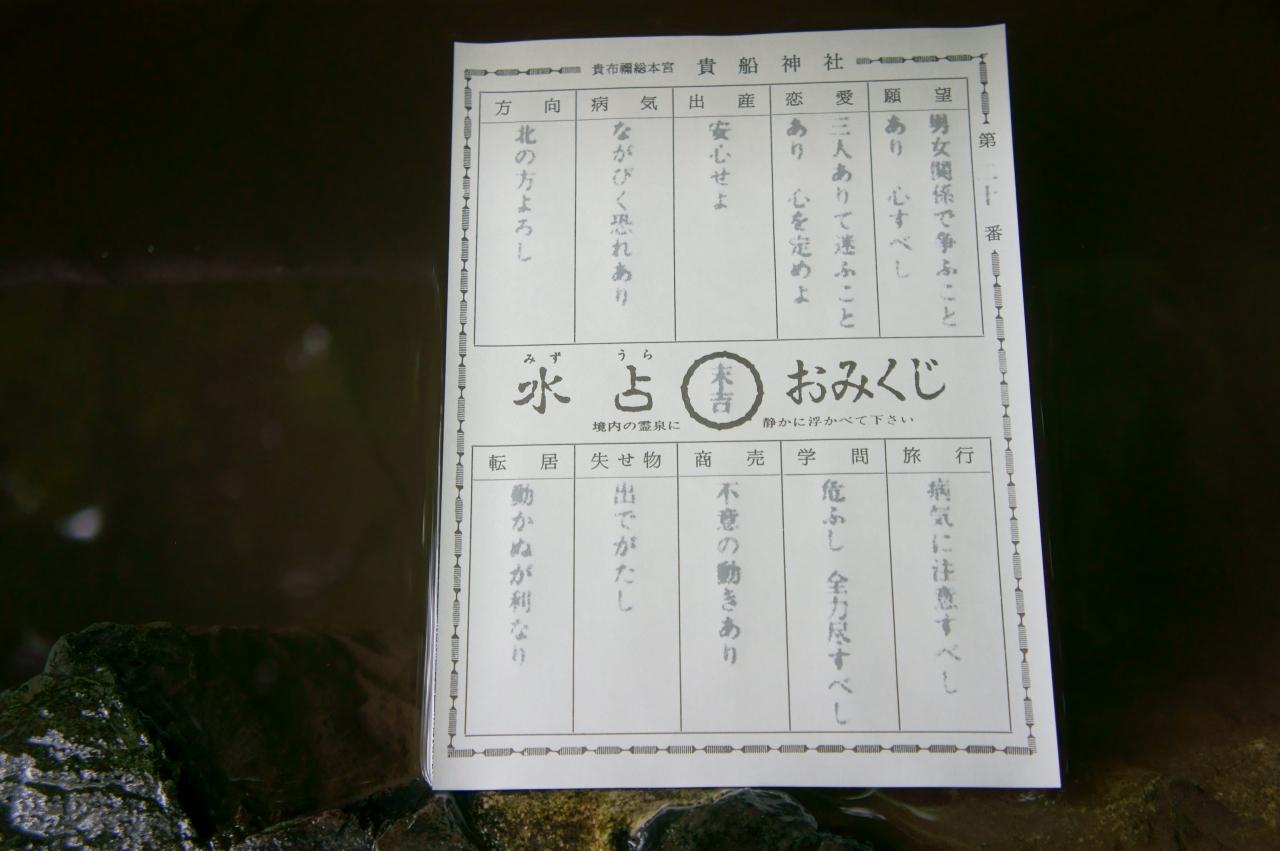 貴布禰総本宮 貴船神社
第二十番
願望
男女関係で争ふこと
あり 心すべし
恋愛
三人ありて迷ふこと
あり 心を定めよ
出産
安心せよ
病気
ながびく恐れあり
方向
北の方よろし
みずうら
水占 末吉 おみくじ
境内の霊泉に 静かに浮かべて下さい
旅行
病気に注意すべし
学問
危ふし 全力尽すべし
商売
不意の動きあり
失せ物
出でがたし
転居
動かぬが利なり